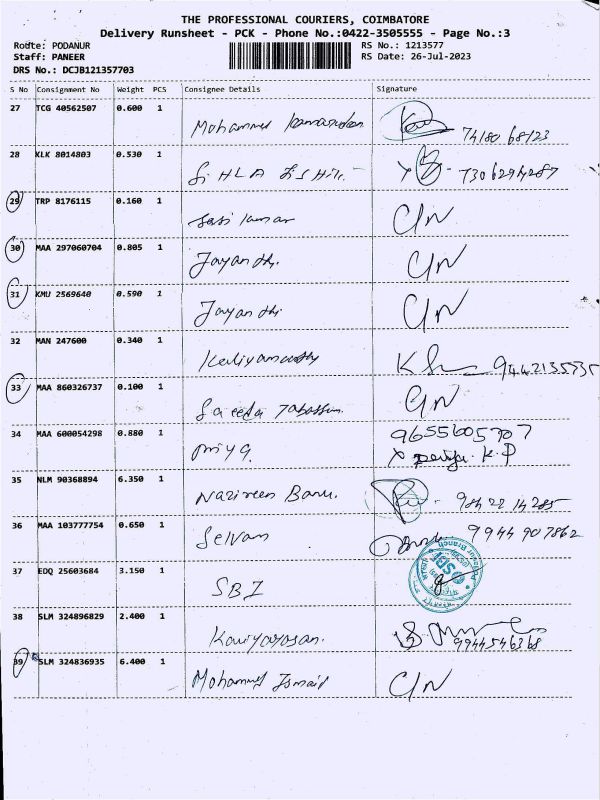 THE PROFESSIONAL COURIERS, COIMBATORE
Delivery Runsheet - PCK - Phone No.:0422-3505555 - Page No.:3
Route: PODANUR RS No.: 1213577
Staff: PANEER RS Date: 26-Jul-2023
DRS No.: DCJB121357703
S No Consignment No Weight PCS Consignee Details Signature
27 TCG 40562507 0.600 1
Mohammed 74180 68123
28 KLK 8014803 0.530 1
7306294287
29 TRP 8176115 0.160 1
Sasi kumar C/N
30 MAA 297060704 0.805 1
Jayanthi C/N
31 KMU 2569640 0.590 1
Jayanthi C/N
32 MAN 247600 0.340 1
Kaliyamoorthy 9442135735
33 MAA 860326737 0.100 1
Saeeda Tabassum C/N
34 MAA 600054298 0.880 1 9655605707
Priya K.P
35 NLM 90368894 6.350 1
Nazireen Banu. 98422 14285
36 MAA 103777754 0.650 1
Selvam 9944907862
37 EDQ 25603684 3.150 1
SBI
38 SLM 324896829 2.400 1
Kaviyarasan. 9944546368
39 SLM 324836935 6.400 1
Mohammed Ismail C/N